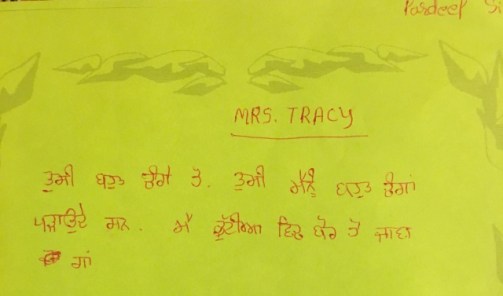 Pardeep Si
MRS. TRACY
ਤੁਸੀ ਬਹੁਤ ਚੰਗੇ ਹੋ. ਤੁਸੀ ਮੈਨੂੰ ਬਹੁਤ ਚੰਗਾ
ਪੜਾਉਦੇ ਸਨ. ਮੈਂ ਛੁੱਟੀਆ ਵਿਚ
ਗਾਂ